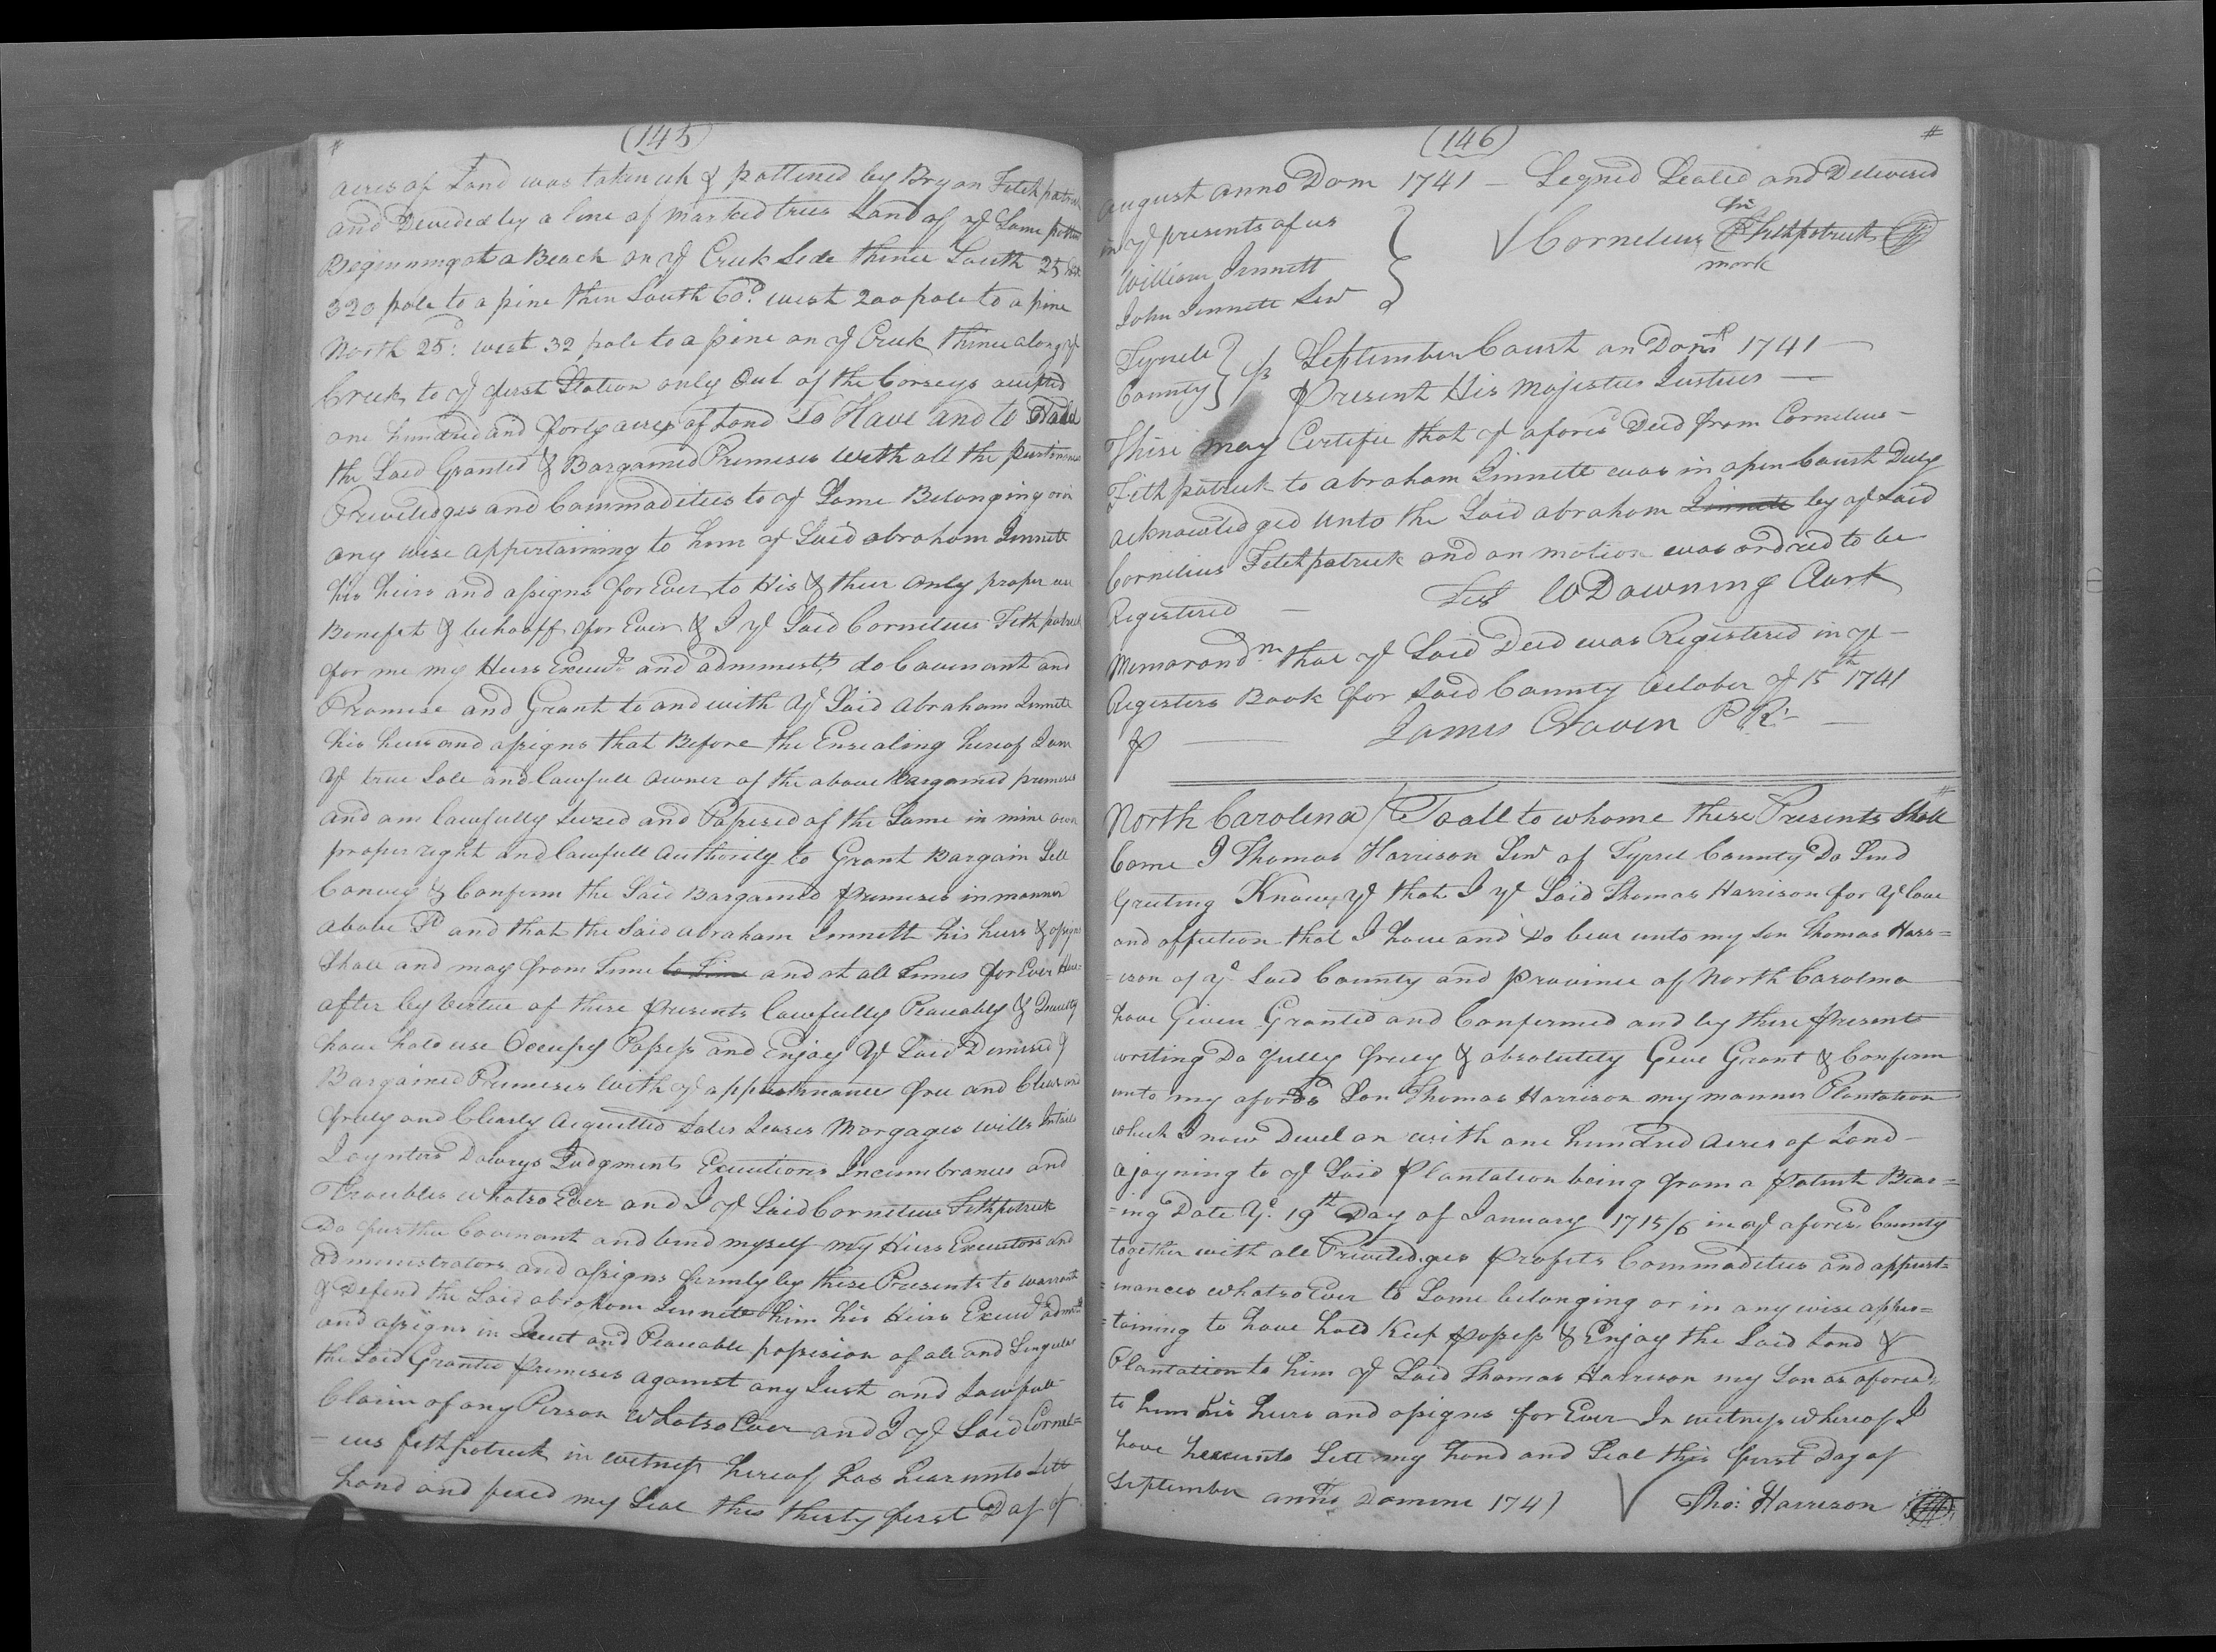 (145)
acres of Land was taken up & pattened by Bryan Fitchpatrick
and Devided by a line of marked trees Land of ye Same
Beginning at a Beach on ye Creek Side thence South 25
320 pole to a pine then South 60d. west 200 pole to a pine
North 25d: west 32 pole to a pine on ye Creek thence along ye
Creek to ye first Station only Out of the Corseys
one hundred and forty acres of Land To Have and to Hold
the Said Granted & Bargained Premises with all the
Priviledges and Commodities to ye Same Belonging or in
any wise appertaining to him ye Said abraham Jennett
his heirs and assigns for Ever to His & their only proper use
Benefit & behooff for Ever & I ye Said Cornelius Fithpatrick
for me my Heirs Execrs. and adminestrs. do Covenant and
Promise and Grant to and with ye Said Abraham Jennett
his heirs and assigns that Before the Ensealing hereof I am
ye true Sole and lawfull owner of the above Bargained premises
and am lawfully Seized and Possesed of the Same in mine own
proper right and lawfull Authority to Grant Bargain Sell
Convey & Confirm the Said Bargained premises in manner
above Sd and that the Said abraham Jennett his heirs & assigns
Shall and may from Time to Time and at all Times for Ever Here=
after by Vertue of these presents lawfully Peaceably &
have hold use Occupy Possess and Enjoy ye Said Demised &
Bargained Premises with ye appurtinances free and Clear and
freely and Clearly Acquitted Sales Leases Morgages wills Intails
Joynters Dowrys Judgments Executions Incumbrances and
Troubles whatso Ever and I ye Said Cornelius Fithpatrick
Do further Covenant and bind myself my Heirs Executors and
administrators and assigns firmly by these Presents to warrant
& Defend the Said abraham Jennett him his Heirs Execrs
and assigns in Quiet and Peaceable possesion of all and Singular
the Said Granted premises against any Just and Lawfull
Claim of any Person Whatso Ever and I ye Said Cornel=
-ius fithpatrick in witness hereof has hearunto Sett
hand and fixed my Seal this thirty first Day of
(146)
august anno Dom 1741 - Segned Sealed and Delivered
in ye presents of us
William Jennett
John Jennett Senr
his
Cornelius Fithpatrick
mark
Tyrrele
County } ss September Court an Dom 1741
Present His Majesties Justices
These may Certifie that ye afores Deed from Cornelius
Fithpatrick to abraham Jinnett was in open Court Duly
acknowledged unto the Said abraham Jinnett by ye Said
Cornelius Fitchpatrick and on motion was ordred to be
Registered - Test W Downing Clerk
Memorandm that ye Said Deed was Registered in ye
Registers Book for Said County October ye 15th 1741
P James Craven P R:
North Carolina / To all to whome these Presents Shall
Come I Thomas Harrison Senr of Tyrrel County Do Send
Greeting Know ye that I ye Said Thomas Harrison for ye love
and affection that I have and Do bear unto my Son Thomas Harr=
=ison of ye. Said County and province of North Carolina
have Given Granted and Confermed and by these present
writing Do fully freely & absolutely Give Grant & Confirm
unto my aforsd Son Thomas Harrison my manner Plantation
which I now Dwel on with one hundred acres of Land
ajoyning to ye Said Plantation being from a patent Bear=
=ing Date ye. 19th Day of January 1715/6 in ye aforesd County
together with all Priviledges Profits Commodities and appurt=
=inances whatso Ever to Same belonging or in any wise apper=
=taining to have hold Keep possess & Enjoy the Said Land &
Plantation to him ye Said Thomas Harrison my Son as aforesd.
to him his heirs and assigns for Ever In witness whereof I
have hereunto Sett my hand and Seal this first Day of
September anno Domini 1741 Tho: Harrison